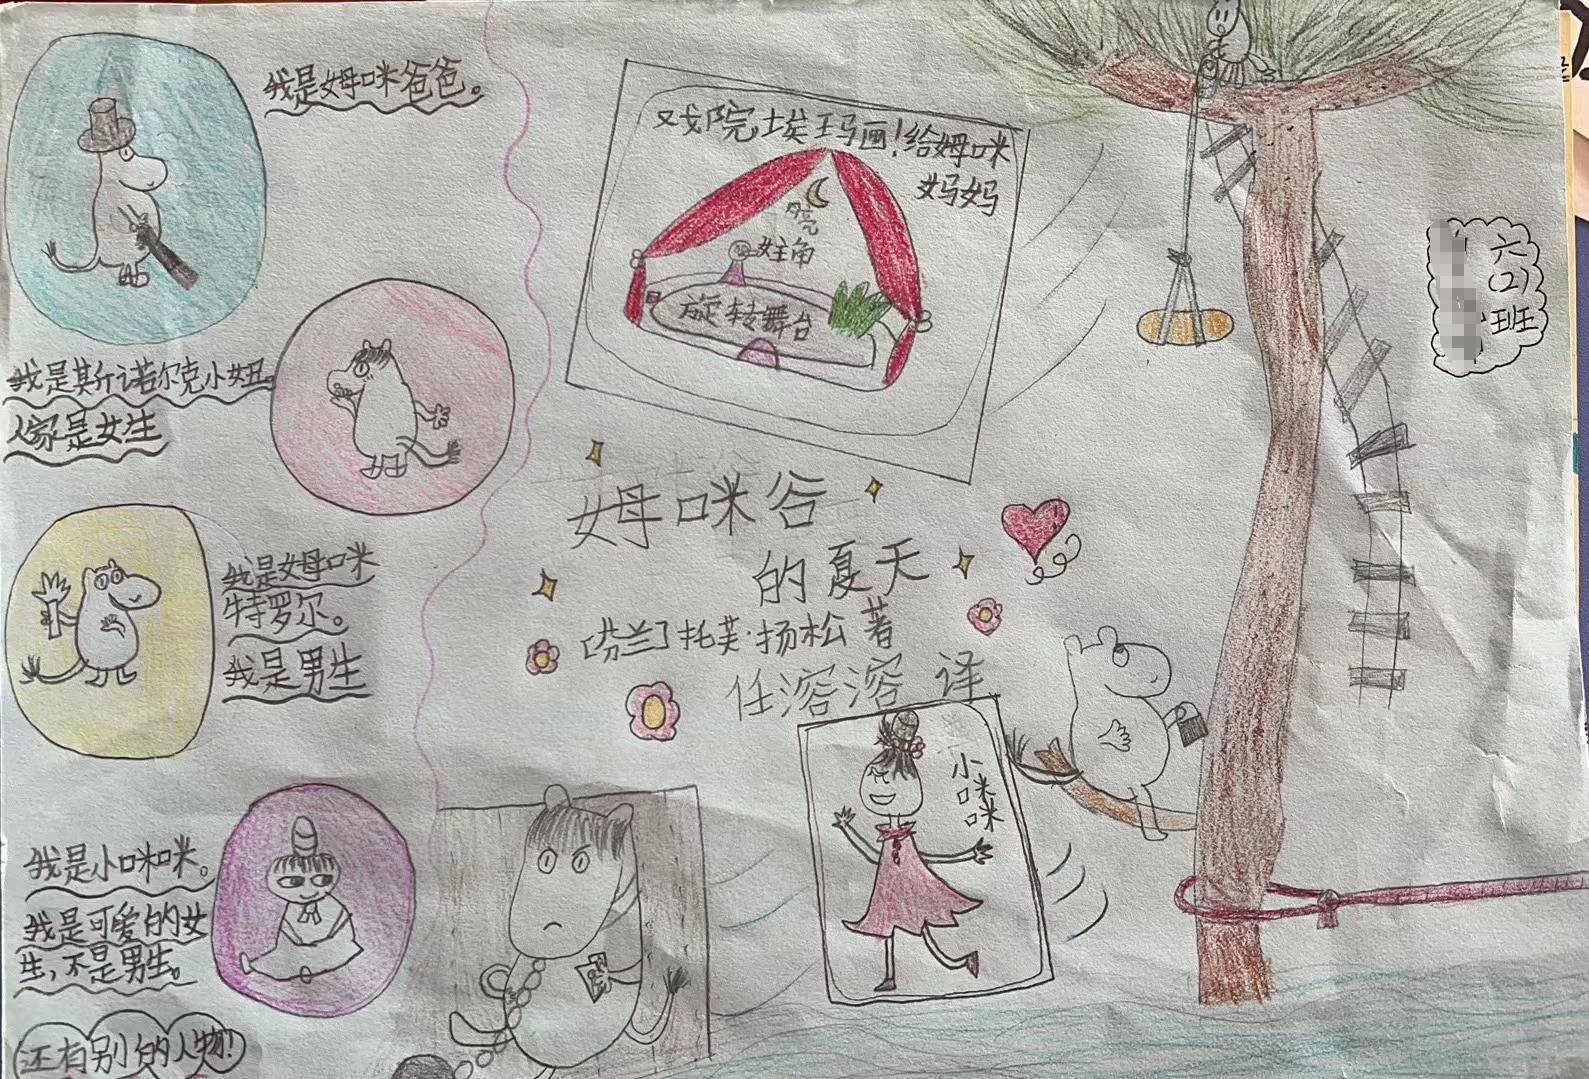 我是姆咪爸爸。
我是斯诺尔克小妞。
人家是女生
我是姆咪
特罗尔。
我是男生
我是小咪咪。
我是可爱的女
生,不是男生。
还有别的人物!
戏院埃玛画!给姆咪
妈妈
月亮
女主角
旋转舞台
姆咪谷
的夏天
[芬兰]托芙·扬松 著
任溶溶 译
小咪咪
六(2)班